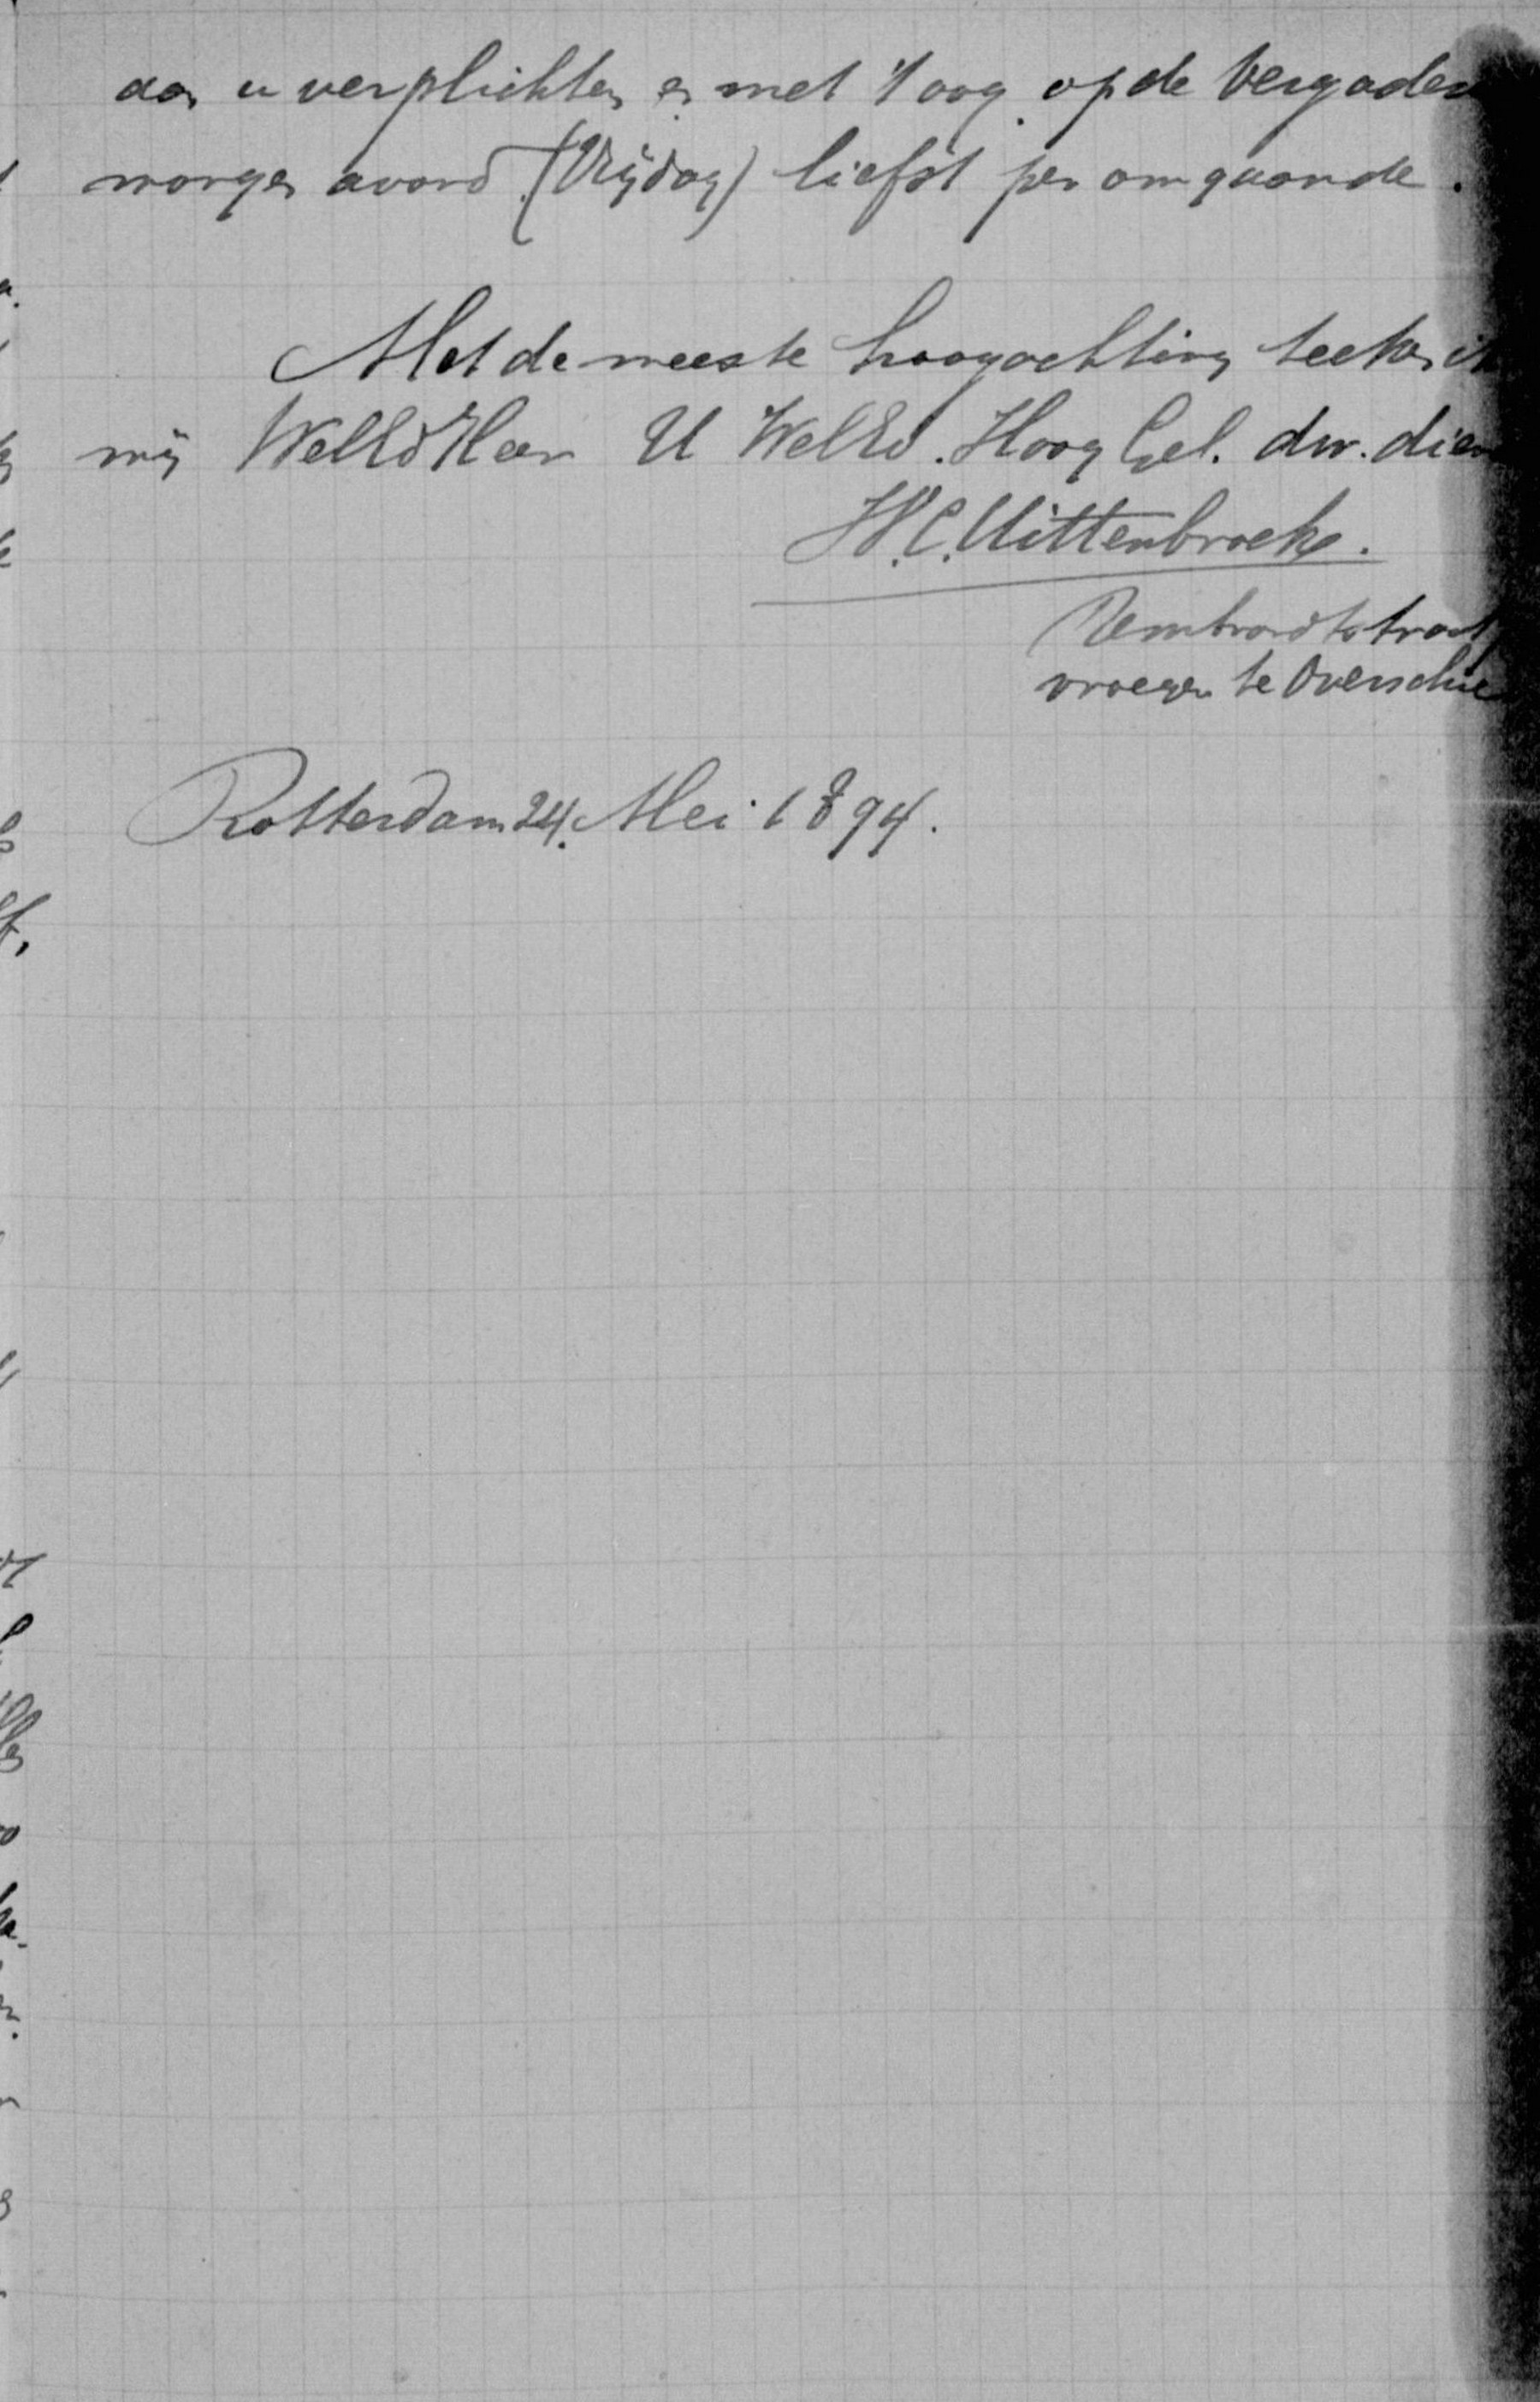 aan u verplichten en met 't oog op de Vergader
morgen avond (Vrijdag) liefst per omgaande.
Met de meeste hoogachting teeken ik
mij WelEd Heer U WelEd. Hoog Gel. dw. dien
H.C. Uittenbroek.
Rembrandtstraat
vroeger te Overschie
Rotterdam 24. Mei 1894.